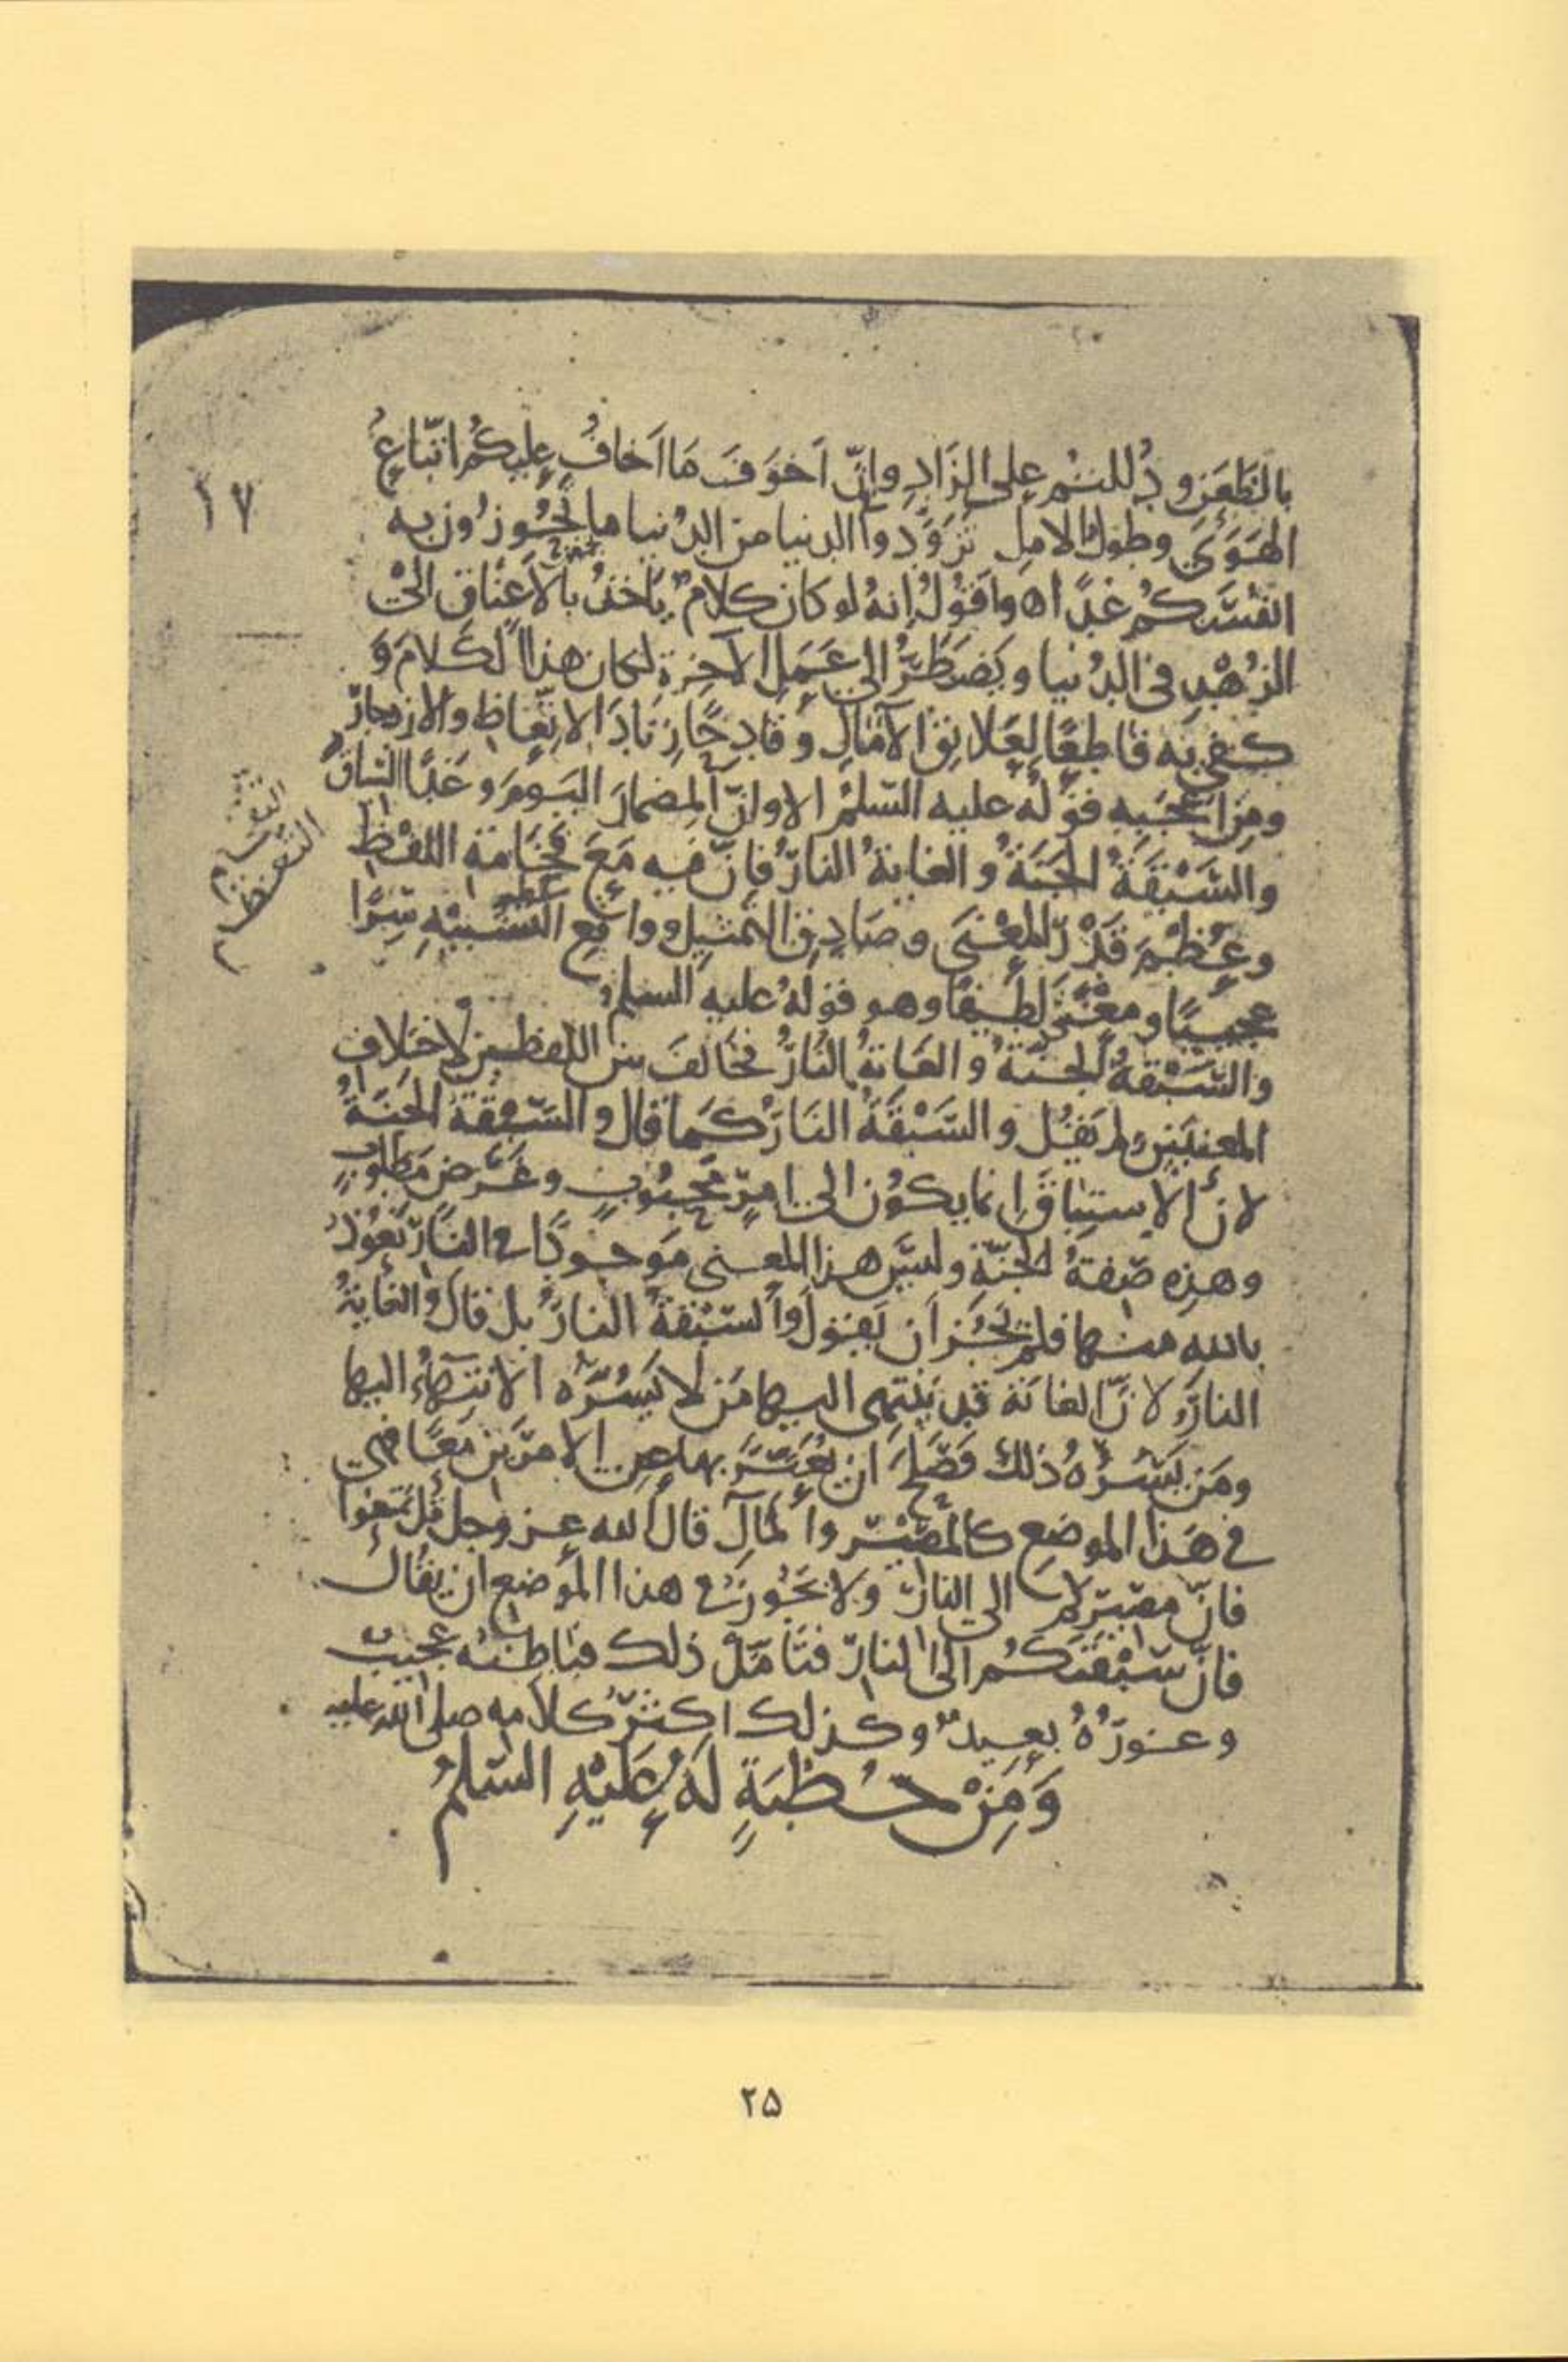 بالظَّعَنِ و دُلِلتُم على الزَّادِ وإنّ اَخوَفَ مَا اَخافُ عليكُم اتّباعُ
الهَوَى وطولُ الامل تَزَوَّدوا فى الدنيا من الدُنيا ما تَحُوزُون به
انفُسَكُم غدًا واَقُولُ إنه لو كان كلامٌ يَاخذُ بالاَعنَاق الى
الزُهْدِ فى الدُنيا و يَضطَرُّ الى عَمَلِ الآخِرةِ لكان هذا الكَلامَ وَ
كفى به قاطِعًا لِعَلائِقِ الآمَالِ و قادِحًا زِنَادَ الاتِّعَاظِ والازدجارِ
ومِن اَعْجَبِهِ قوله عليه السّلمُ الا وانّ المِضمارَ اليَومَ وغَدًا السّباقُ
والسَّبْقَةُ الجَنَّةُ و الغايةُ النارُ فإنّ فيه مَعَ فَخَامَةِ اللفْظِ
وعِظَمِ قَدْرِ المعْنَى وصَادِقِ التَمثِيلِ وواقعِ التشبِيْهِ سِرًّا
عجيبًا ومعْنًى لَطِيفًا وهو قولهُ عليه السلمُ
والسَّبْقَةُ الجنّةُ والغَايةُ النَارُ فخَالَفَ بين اللفظين لاختِلافِ
المعنيَينِ ولم يَقُل والسَّبْقَةُ النَارُ كَما قال والسَّبْقَةُ الجَنَّةُ
لانّ الاستِباقَ إنما يكوُن الى امرٍ مَحبُوبٍ وغَرَضٍ مَطلوبٍ
وهذِهِ صفةُ الجنّةِ وليسَ هذا المعنى مَوجُودًا فى النّارِ نَعُوذُ
بالله منها فلم يَجُز اَن يَقُولَ والسّبْقةُ النارُ بل قالَ والغايةُ
النارُ لانّ الغايَة قد يَنتَهِى اليها مَن لا يَسُرُّه الانتِهَاءُ اليها
ومَن يَسُرُّهُ ذلك فصَلحَ ان يُعَبَّرَ بها عن الامرَين مَعًا فهى
فى هَذا الموضِع كالمَصِيْرِ والمَآلِ قالَ الله عز وجل قُل تمَتّعُوا
فانّ مصِيرَكم الى النارِ ولا يَجُوزُ فى هذا الموضع ان يقالَ
فانّ سَبْقَتَكُم الى النارِ فتَأمّلْ ذلك فبَاطِنُه عجيبٌ
وغَورُهُ بعيدٌ وكذلك اكثرُ كلامه صلى الله عليه
وَمِنْ خُطْبَةٍ لَهُ عَلَيْهِ السّلمُ
١٧
٢٥